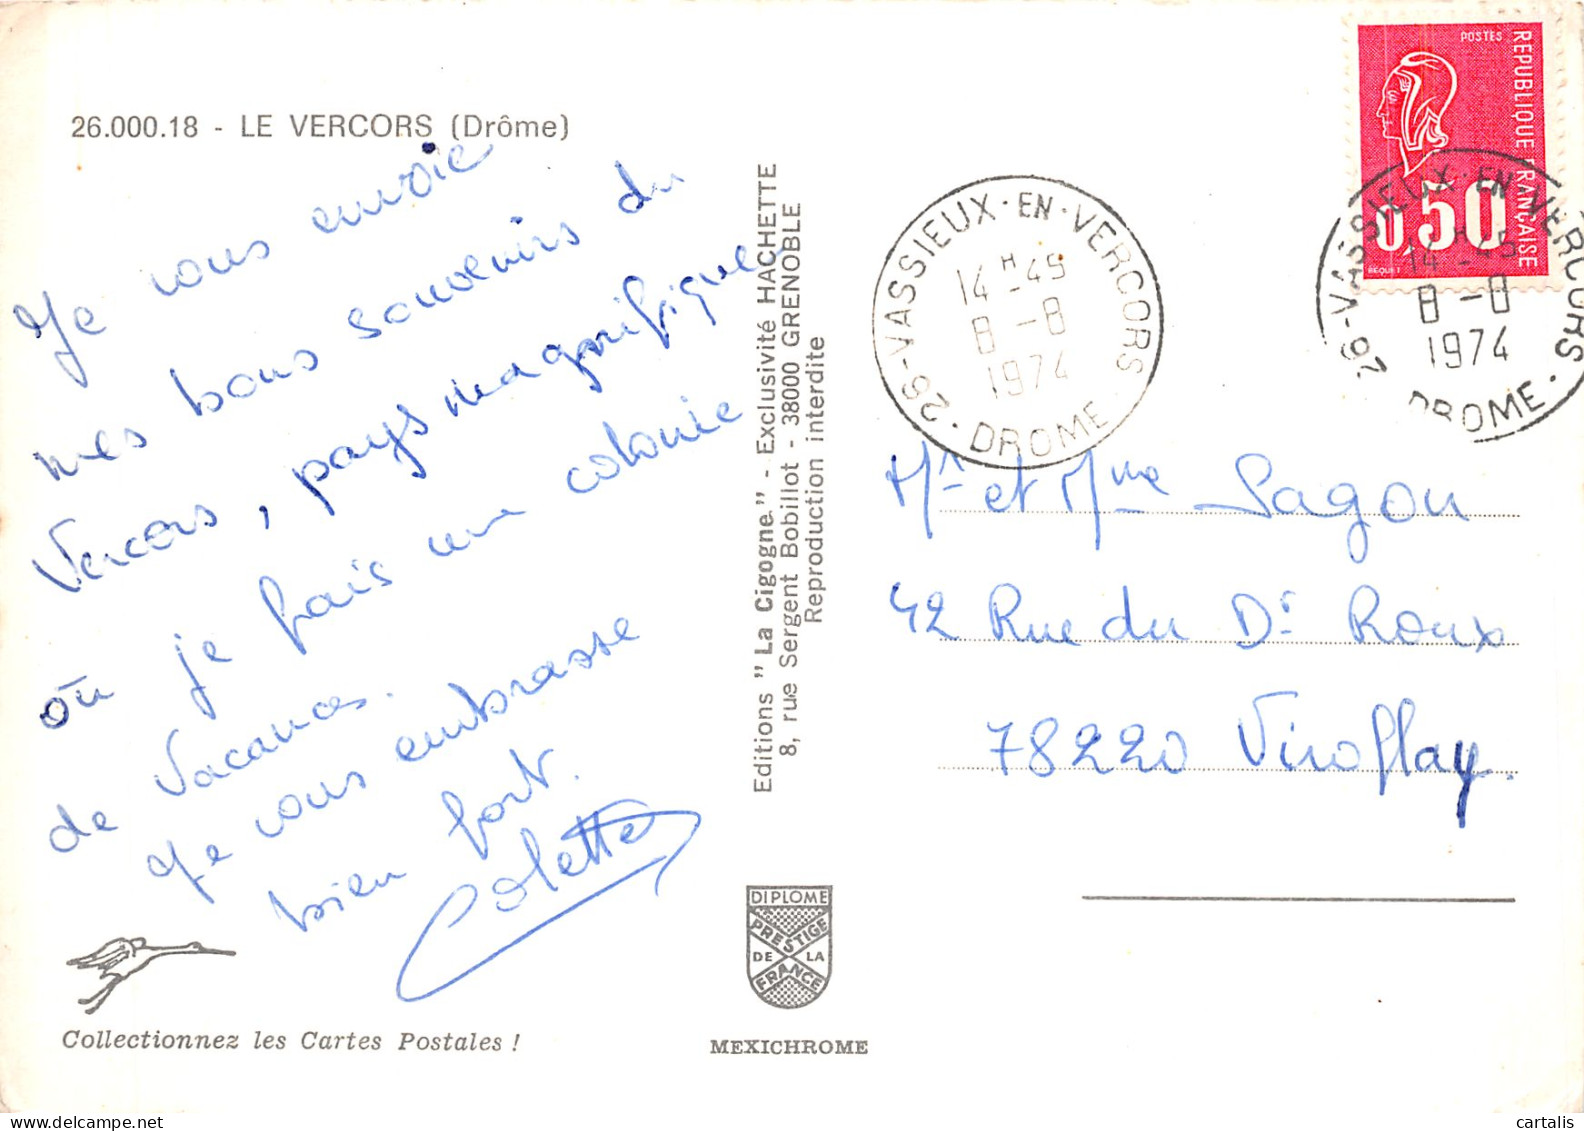 26.000.18 - LE VERCORS (Drôme)
Je vous envoie
mes bons souvenirs du
Vercors, pays magnifique
où je fais une colonie
de Vacances.
Je vous embrasse
bien fort.
Colette
Collectionnez les Cartes Postales !
Editions "La Cigogne" - Exclusivité HACHETTE
8, rue Sergent Bobillot - 38000 GRENOBLE
Reproduction interdite
DIPLOME
PRESTIGE
DE LA
FRANCE
MEXICHROME
26-VASSIEUX-EN-VERCORS
14H-45
8-8
1974
DROME
POSTES
REPUBLIQUE FRANÇAISE
0,50
BEQUET
26-VASSIEUX-EN-VERCORS
14H-45
8-8
1974
DROME
Mr et Mme Sagou
42 Rue du Dr Roux
78220 Viroflay.
cartalis